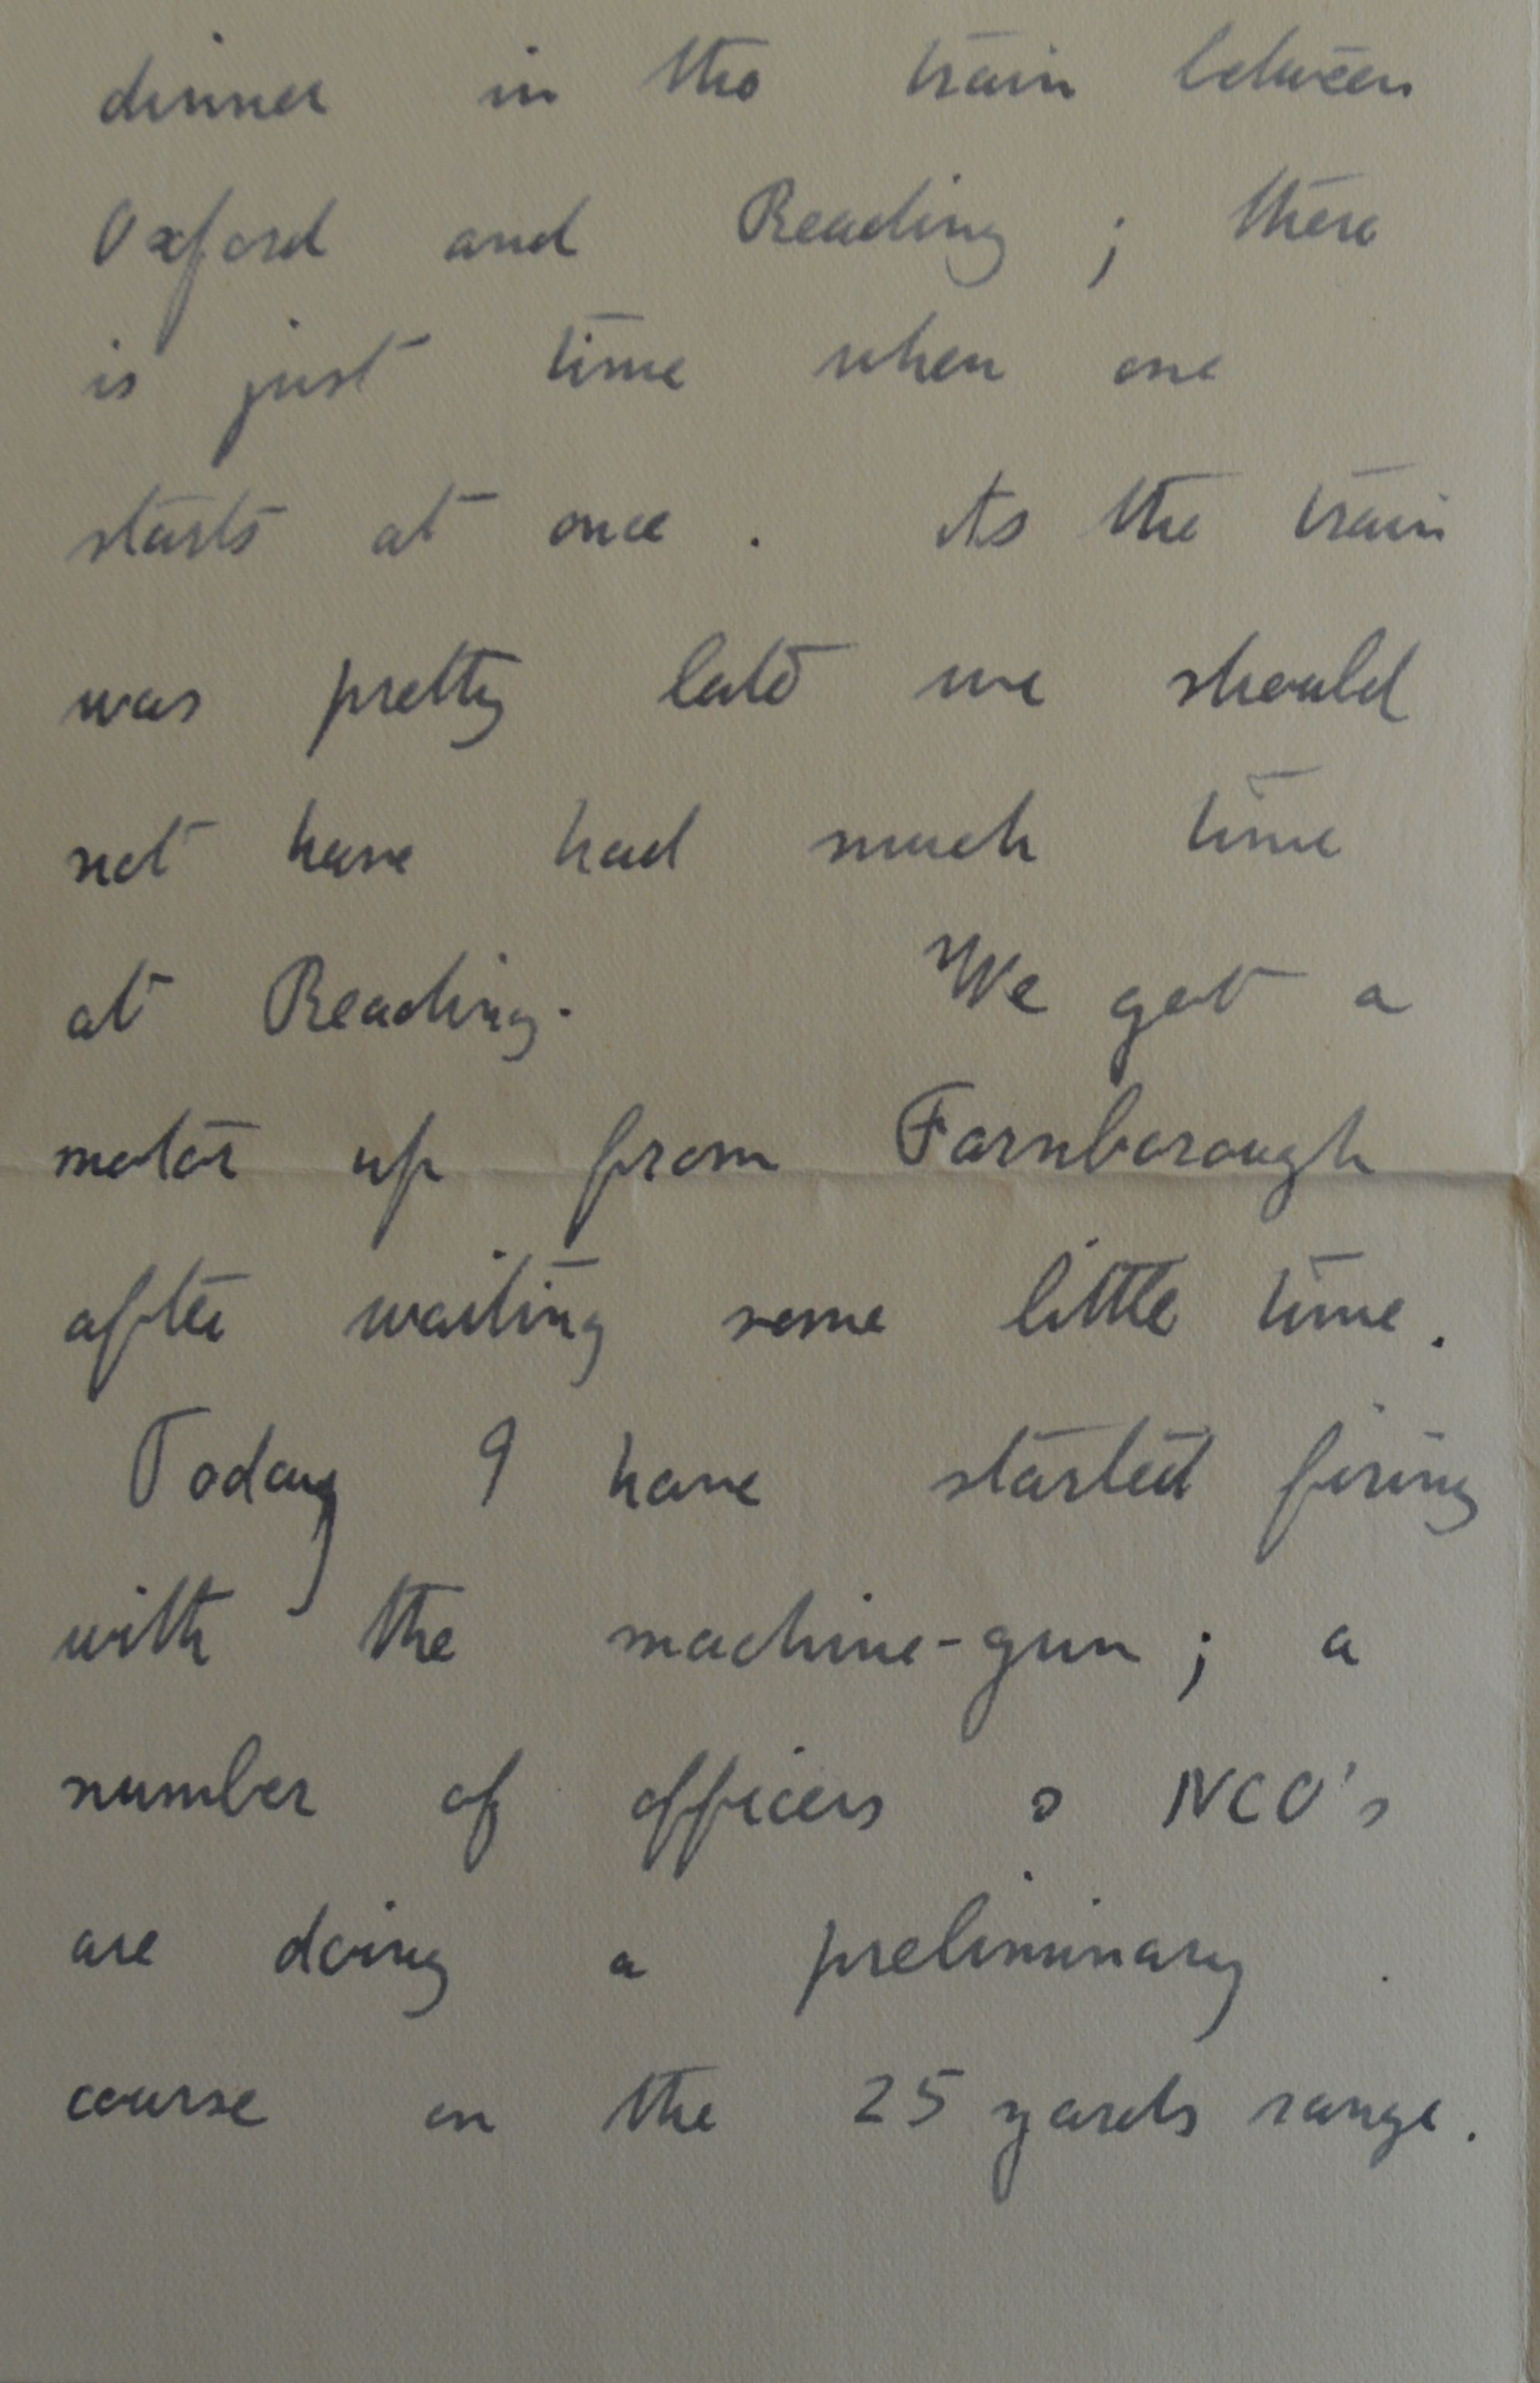 dinner in the train between
Oxford and Reading ; there
is just time when one
starts at once . As the train
was pretty late we should
not have had much time
at Reading. We got a
motor up from Farnborough
after waiting some little time .
Today I have started firing
with the machine-gun ; a
number of officers & NCO's
are doing a preliminary
course on the 25 yards range .